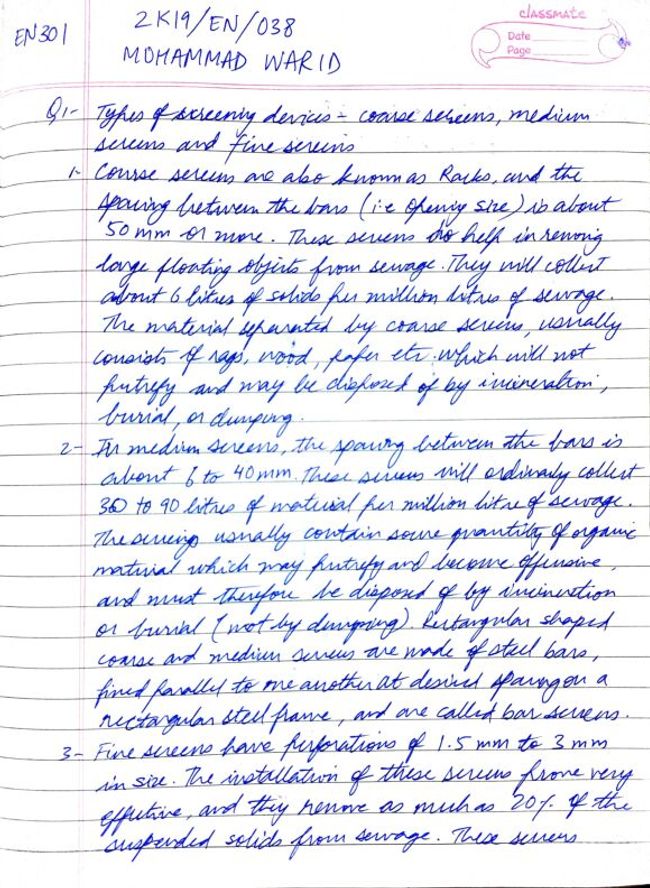 EN301
2K19/EN/038
MOHAMMAD WARID
classmate
Date
Page
Q1- Types of screening devices - coarse screens, medium
screens and fine screens
1- Course screens are also known as Racks, and the
spacing between the bars (i.e opening size) is about
50 mm or more. These screens do help in removing
large floating objects from sewage. They will collect
about 6 litres of solids per million litres of sewage.
The material separated by coarse screens, usually
consists of rags, wood, paper etc. which will not
putrefy and may be disposed of by incineration,
burial, or dumping.
2- In medium screens, the spacing between the bars is
about 6 to 40mm. These screens will ordinarily collect
30 to 90 litres of material per million litre of sewage.
The screenings usually contain some quantity of organic
material which may putrefy and become offensive,
and must therefore be disposed of by incineration
or burial (not by dumping). Rectangular shaped
coarse and medium screens are made of steel bars,
fixed parallel to one another at desired spacing on a
rectangular steel frame, and are called bar screens.
3- Fine screens have perforations of 1.5 mm to 3 mm
in size. The installation of these screens prove very
effective, and they remove as much as 20% of the
suspended solids from sewage. These screens